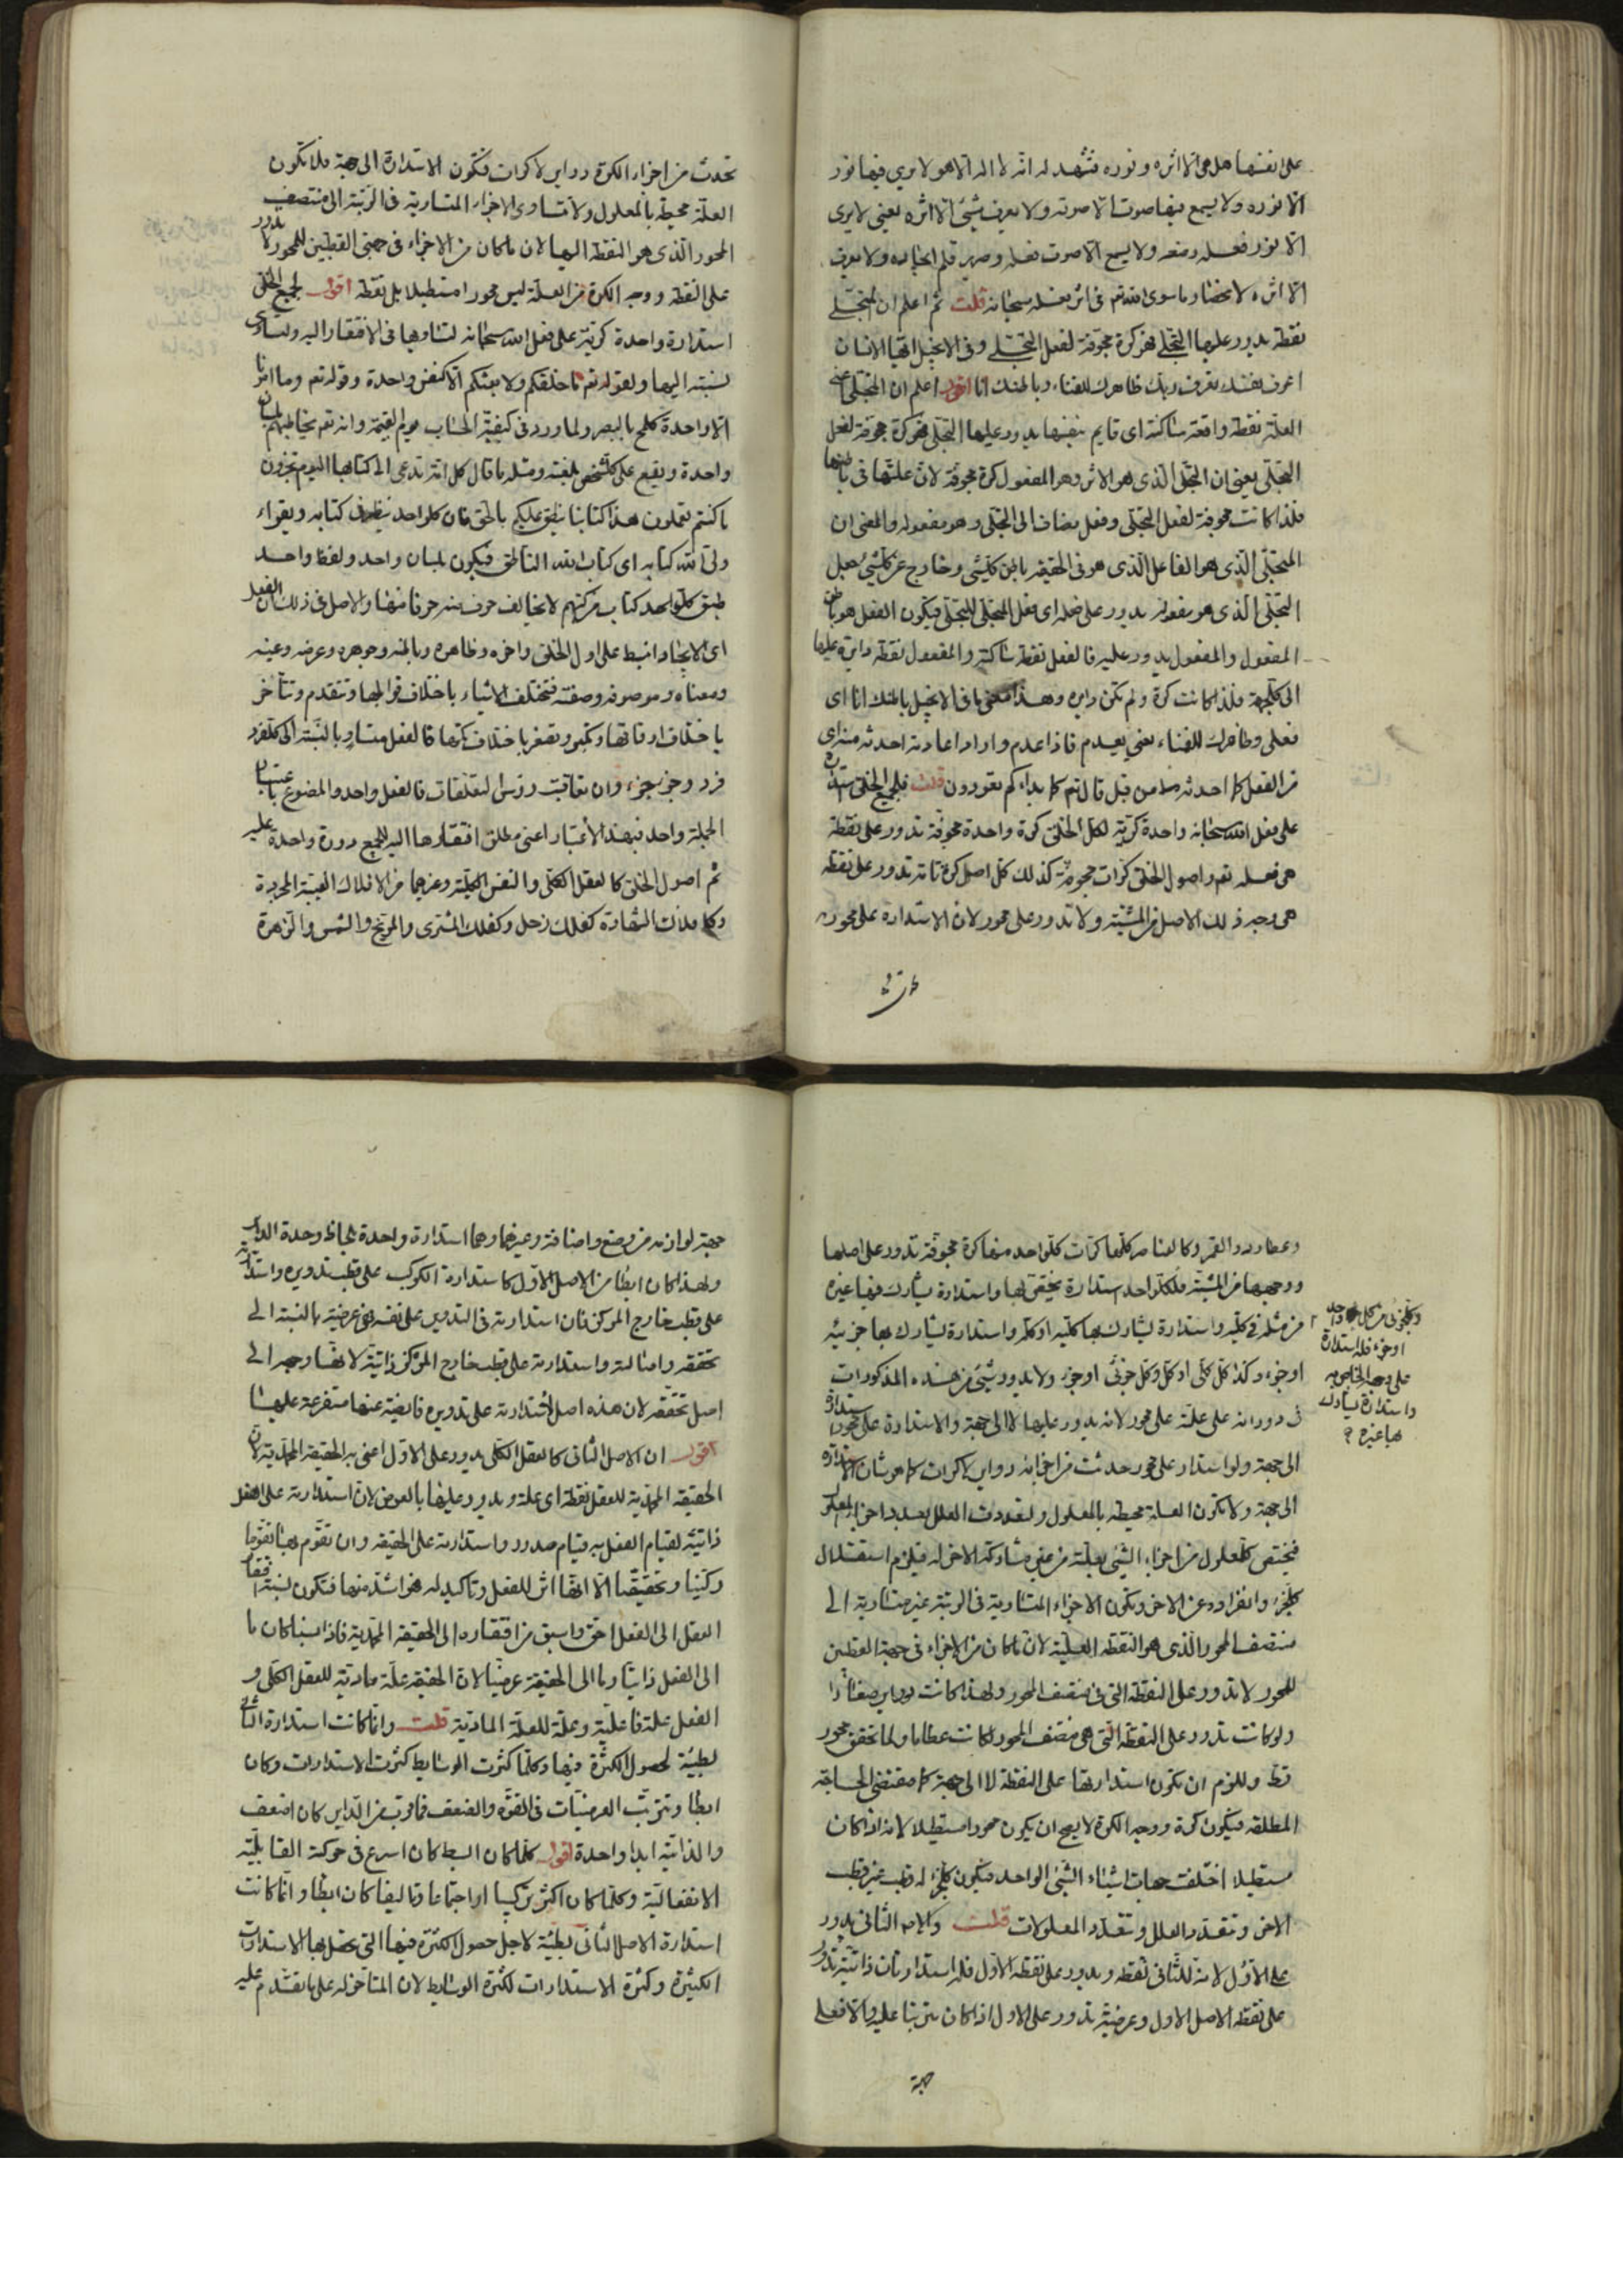 على نفسها هل هي الا اثره ونوره فتشهد له انه لا اله الا هو لا يرى فيها نور
الا نوره ولا يسمع فيها صوت الا صوته ولا يعرف شيئ الا اثره يعني لا يرى
الا نور فعله وصنعه ولا يسمع الا صوت فعله
الا اثره لا محضا وما سوى الله تع في اثر فعله سبحانه قلت ثم اعلم ان المتجلي
نقطة يدور عليها التجلي فهو كرة مجوفة لفعل المتجلي وفي الانجيل ايها الانسان
اعرف نفسك تعرف ربك ظاهرك للفناء وباطنك انا اقول اعلم ان المتجلي
العلة نقطة واقعة ساكنة اى قايم بنفسها يدور عليها التجلي فهو كرة مجوفة لفعل
المتجلي يعني ان التجلي الذى هو الاثر وهو المفعول كرة مجوفة لان علتها في باطنها
فلذا كانت مجوفة لفعل المتجلي وفعل مضاف الى المتجلي وهو مفعوله والمعنى ان
المتجلي الذى هو الفاعل الذى هو في الحقيقه باطن كلشئ وخارج عن كلشئ جعل
التجلي الذى هو مفعوله يدور على فعله اى فعل المتجلي للتجلي فيكون الفعل هو باطن
المفعول والمفعول يدور عليه فالفعل نقطة ساكنة والمفعول نقطة دايرة عليها
الى كلجهة فلذا كانت كرة ولم تكن دايره وهذا معنى ما في الانجيل باطنك انا اى
فعلى وظاهرك للفناء يعني يعدم فاذا عدم واراد اعادته احدثه
من الفعل كما احدثه من قبل قال تع كما بداءكم تعودون قلت فلجميع الخلق استدارة
على فعل الله سبحانه واحدة كرية لكل الخلق كرة واحدة مجوفة تدور على نقطة
هي فعله تع واصول الخلق كرات مجوفة كذلك كل اصل كرة تامة تدور على نقطة
هي وجه ذلك الاصل من المشية ولا تدور على محور لان الاستدارة على محور
تحدث من اجزاء الكرة دواير لا كرات فتكون الاستدارة الى جهة فلا تكون
العلة محيطة بالمعلول ولا تساوى الاجزاء المتساوية في الرتبة الى منتصف
المحور الذى هو النقطة اليها لان ما كان من الاجزاء في جهتي القطبين للمحور لا تدور
على النقطة ووجه الكرة من العلة ليس محورا مستطيلا بل نقطة اقول لجميع الخلق
استدارة واحدة كرية على فعل الله سبحانه لتساويها في الافتقار اليه وتساوى
نسبته اليها ولقوله تع ما خلقكم ولا بعثكم الا كنفس واحدة وقوله تع وما امرنا
الا واحدة كلمح بالبصر ولما ورد في كيفية الحساب يوم القيمة وانه تع يخاطبهم بلسان
واحدة ويقع على كلشخص بلغته ومثله ما قال كل امة تدعى الى كتابها اليوم تجزون
ما كنتم تعملون هذا كتابنا ينطق عليكم بالحق فان كلواحد ينظر في كتابه ويقراء
ولى الله كتابه اى كتاب الله الناطق فيكون بلسان واحد ولفظ واحد
طبق كلواحد كتاب لا يخالف حرف منه حرفا منها والاصل في ذلك ان الفعل
اى الايجاد انبسط على اول الخلق واخره وظاهره وباطنه وجوهره وعرضه وعينه
ومعناه وموصوفه وصفته فتختلف الاشياء باختلاف قوابلها وتتقدم وتتأخر
باختلاف اوقاتها وتكبر وتصغر باختلاف كمها فالفعل متساو بالنسبة الى كلفرد
فرد وجزء جزء وان تعاقبت رؤس التعلقات فالفعل واحد والمصنوع باعتبار
الجملة واحد فبهذا الاعتبار اعنى مطلق افتقارها اليه للجميع دورة واحدة عليه
ثم اصول الخلق كالعقل الكلى والنفس الكلية وغيرهما من الافلاك الغيبية المجردة
وكافلاك الشهادة كفلك زحل وكفلك المشترى والمريخ والشمس والزهرة
وعطارد والقمر وكالعناصر كلها كرات كلواحد منها كرة مجوفة تدور على اصلها
ووجهها من المشية فلكلواحد استدارة يختص بها واستدارة يشارك فيها غيره
من مثله في كليه واستدارة يشارك بها كليه او كله واستدارة يشارك بها جزئيه
او جزءه وكذا كل كلى او كل وكل جزئى او جزء ولا يدور شئ من هذه المذكورات
في دورانه على علته على محور لانه يدور عليها لا الى جهة والاستدارة على محور استدارة
الى جهة ولو استدار على محور حدثت من اجزائه دواير لا كرات كما هو شان الاستدارة
الى جهة ولا تكون العلة محيطة بالمعلول ولتعددت العلل بعدد اجزاء المعلول
فيختص كلمعلول من اجزاء الشئ بعلة من غير مشاركة الاخر له فيلزم استقلال
كلجزء وانفراده عن الاخر وتكون الاجزاء المتساوية في الرتبة غير متساوية الى
منتصف المحور الذى هو النقطة العلية لان ما كان من الاجزاء في جهة القطبين
للمحور لا تدور على النقطة التى في منتصف المحور ولهذا كانت دواير صغارا
ولو كانت تدور على النقطة التى هي منتصف المحور لكانت عظاما ولما تحقق محور
قط وللزم ان تكون استدارتها على النقطة لا الى جهة كما مقتضى الحاجة
المطلقة فيكون كرة ووجه الكرة لا يصح ان يكون محورا مستطيلا لانه اذا كان
مستطيلا اختلفت جهات اشياء الشئ الواحد فيكون كلجزء له قطب غير قطب
الاخر وتتعدد العلل وتتعدد المعلولات قلت والاصل الثانى يدور
على الاول لانه للثانى نقطه ويدور على نقطة الاول فله استدارتان ذاتية تدور
على نقطة الاصل الاول وعرضية تدور على الاول اذا كان مترتبا عليه والا فعلى
جهة
وكلجزئى من كلواحد
او جزء فله استدارة
على وجهه الخاص به
واستدارة يشارك
بها غيره
جهة لوازمه من وضع واضافة وغيرهما وهما استدارة واحدة بلحاظ وحدة الداير
ولهذا كان ابطأ من الاصل الاول كاستدارة الكوكب على قطب تدويره واستدارته
على قطب خارج المركز فان استدارته في التدوير على نفسه فهي عرضية بالنسبة الى
تحققه واصالته واستدارته على قطب خارج المركز ذاتية لانها وجهه الى
اصل تحققه لان هذه اصل لاستدارته على تدويره فايضة عنها متفرعة عليها
اقول ان الاصل الثانى كالعقل الكلى يدور على الاول اعنى به الحقيقة المحمدية لان
الحقيقة المحمدية للعقل نقطة اى علة ويدور عليها بالعرض لان استدارته على الفعل
ذاتية لقيام العقل به قيام صدور واستدارته على الحقيقة وان تقوم بها تقوما
ركنيا وتحققيا الا انها اثر للفعل وتاكيد له فهو اشد منها فتكون نسبة افتقار
العقل الى الفعل احق واسبق من افتقاره الى الحقيقة المحمدية فاذا نسبنا كان ما
الى الفعل ذاتيا وما الى الحقيقة عرضيا لان الحقيقة علة مادية للعقل الكلى و
الفعل علة فاعلية وعلة للعلة المادية قلت وانما كانت استدارة الثانى
بطيئة لحصول الكثرة فيها وكلما كثرت الوسائط كثرت الاستدارات وكان
ابطأ وتترتب العرضيات في القوة والضعف فما قرب من الداير كان اضعف
والذاتية ابدا واحدة اقول كلما كان ابسط كان اسرع في حركته القابلية
الانفعالية وكلما كان اكثر تركيبا او اجتماعا وتاليفا كان ابطأ وانما كانت
استدارة الاصل الثانى بطيئة لاجل حصول الكثرة فيها التى تحصل بها الاستدارات
الكثيرة وكثرة الاستدارات لكثرة الوسائط لان المتاخر له على ما تقدم عليه